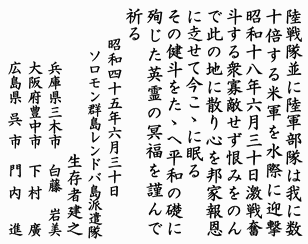 陸戦隊並に陸軍部隊は我に数
十倍する米軍を水際に迎撃
昭和十八年六月三十日激戦奮
斗する衆寡敵せず恨みをのん
で此の地に散り心を邦家報恩
に支せて今こゝに眠る
その健斗をたゝへ平和の礎に
殉じた英霊の冥福を謹んで
祈る
昭和四十五年六月三十日
ソロモン群島レンドバ島派遣隊
生存者建之
兵庫県三木市 白藤岩美
大阪府豊中市 下村廣
広島県呉市 門内進